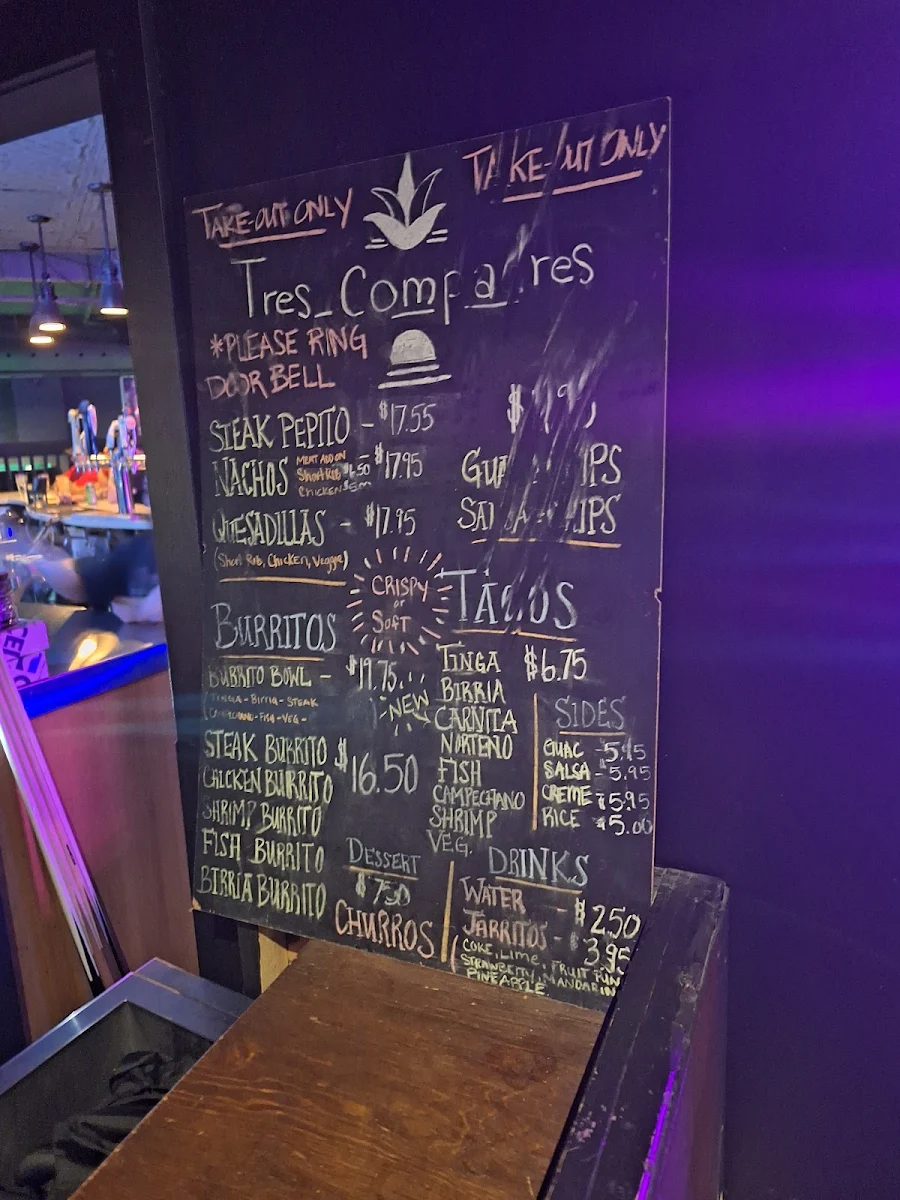 TAKE-OUT ONLY
TAKE-OUT ONLY
Tres Compadres
*PLEASE RING
DOOR BELL
STEAK PEPITO - $17.55
NACHOS
MEAT ADD ON
Short Rib
Chicken
- $17.95
QUESADILLAS - $17.95
(Short Rib, Chicken, Veggie)
CRISPY
or
Soft
BURRITOS
BURRITO BOWL - $19.75
TINGA - BIRRIA - STEAK
CAMPECHANO - FISH - VEG -
STEAK BURRITO
CHICKEN BURRITO
SHRIMP BURRITO
FISH BURRITO
BIRRIA BURRITO
$16.50
DESSERT
$7.50
CHURROS
TACOS
TINGA $6.75
BIRRIA
NEW
CARNITA
NORTENO
FISH
CAMPECHANO
SHRIMP
VEG.
SIDES
GUAC
SALSA - 5.95
CREME $5.95
RICE $5.00
DRINKS
WATER - $2.50
JARRITOS - 3.95
(COKE, Lime, FRUIT PUN
STRAWBERRY, MANDARIN
PINEAPPLE